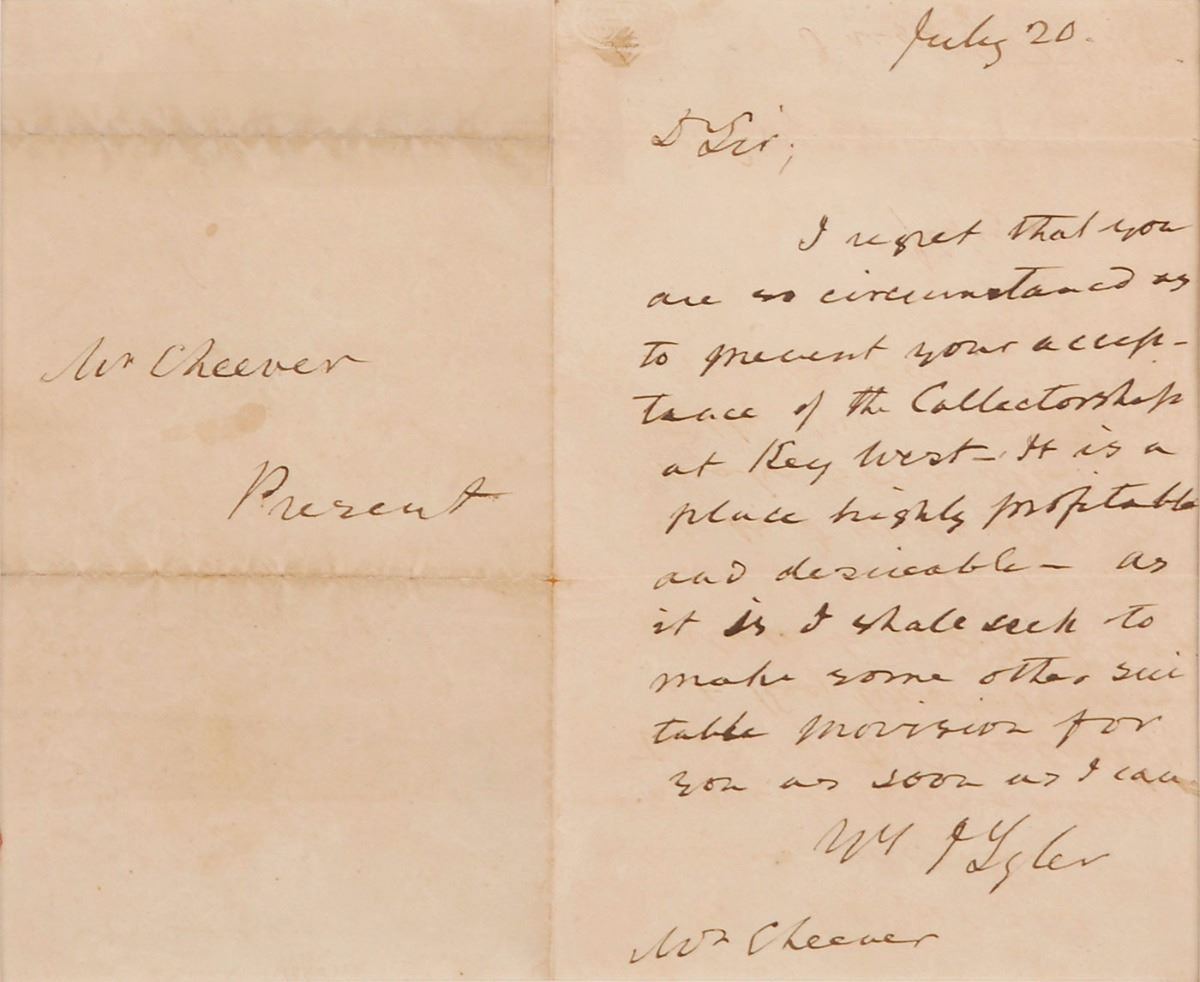 Mr Cheever
Present
July 20.
Dr Sir;
I regret that you
are so circumstanced as
to prevent your accep-
tance of the Collectorship
at Key West - It is a
place highly profitable
and desireable - as
it is I shall seek to
make some other sui
table provision for
you as soon as I can
Yrs J Tyler
Mr Cheever